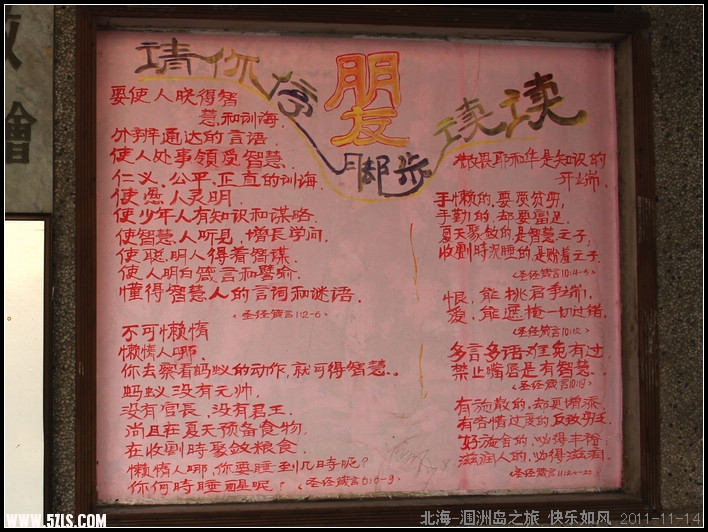 朋友
请你停脚步读读
要使人晓得智
慧和训诲.
分辨通达的言语.
使人处事领受智慧、
仁义、公平、正直的训诲.
使愚人灵明.
使少年人有知识和谋略.
使智慧人听见,增长学问.
使聪明人得着智谋.
使人明白箴言和譬喻.
懂得智慧人的言词和谜语.
<圣经箴言1:2-6>
不可懒惰
懒惰人哪.
你去察看蚂蚁的动作,就可得智慧..
蚂蚁没有元帅.
没有官長.没有君王.
尚且在夏天预备食物.
在收割時聚敛粮食.
懒惰人哪,你要睡到几時呢?
你何時睡醒呢?<圣经箴言6:6-9>
敬畏耶和华是知识的
开端.
手懒的.要受贫穷,
手勤的.却要富足.
夏天聚敛的是智慧之子,
收割時沉睡的是贻羞之子.
<圣经箴言10:4-5>
恨,能挑启争端,
爱.能遮掩一切过错.
<圣经箴言10:12>
多言多语难免有过.
禁止嘴唇是有智慧..
<圣经箴言10:19>
有施散的,却更增添.
有吝惜过度的.反致穷乏.
好施舍的,必得丰裕
滋润人的,必得滋润.
<圣经箴言11:24-25>
www.57IS.COM
北海-涠洲岛之旅 快乐如风 2011-11-14